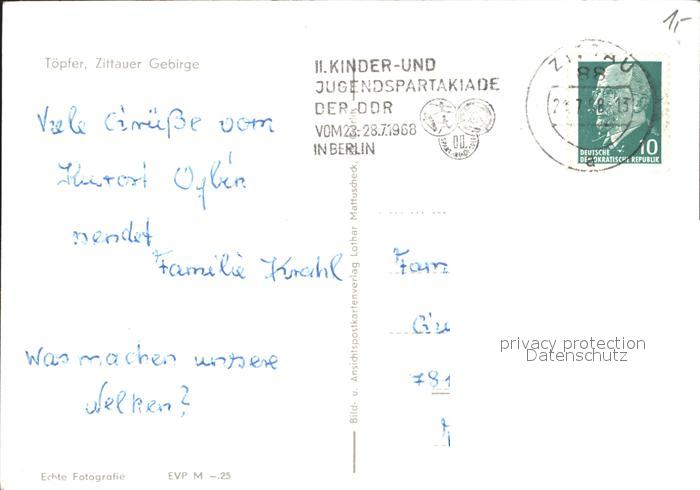 1,-
Töpfer, Zittauer Gebirge
II. KINDER-UND
JUGENDSPARTAKIADE
DER DDR
VOM 23.-28.7.1968
IN BERLIN
ZITTAU
88
a
10
DEUTSCHE
DEMOKRATISCHE REPUBLIK
Viele Grüße vom
Kurort Oybin
sendet
Familie Krahl
Was machen unsere
Nelken?
Bild- u. Ansichtspostkartenverlag Lothar Mattuscheck,
Fam
Gu
781
privacy protection
Datenschutz
Echte Fotografie EVP M -.25